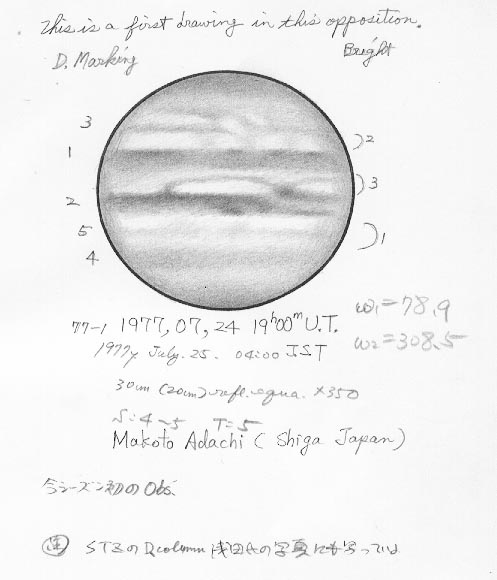 This is a first drawing in this opposition.
D. Marking
Bright
3
2
1
3
2
5
1
4
77-1 1977, 07, 24 19h00m U.T.
ω1=78.9
1977y July. 25. 04:00 JST
ω2=308.5
30cm (20cm) refl. equa. ×350
S:4~5 T=5
Makoto Adachi (Shiga Japan)
今シーズン初のObs.
註 STBのD.column 浅田氏の写真にも写っている